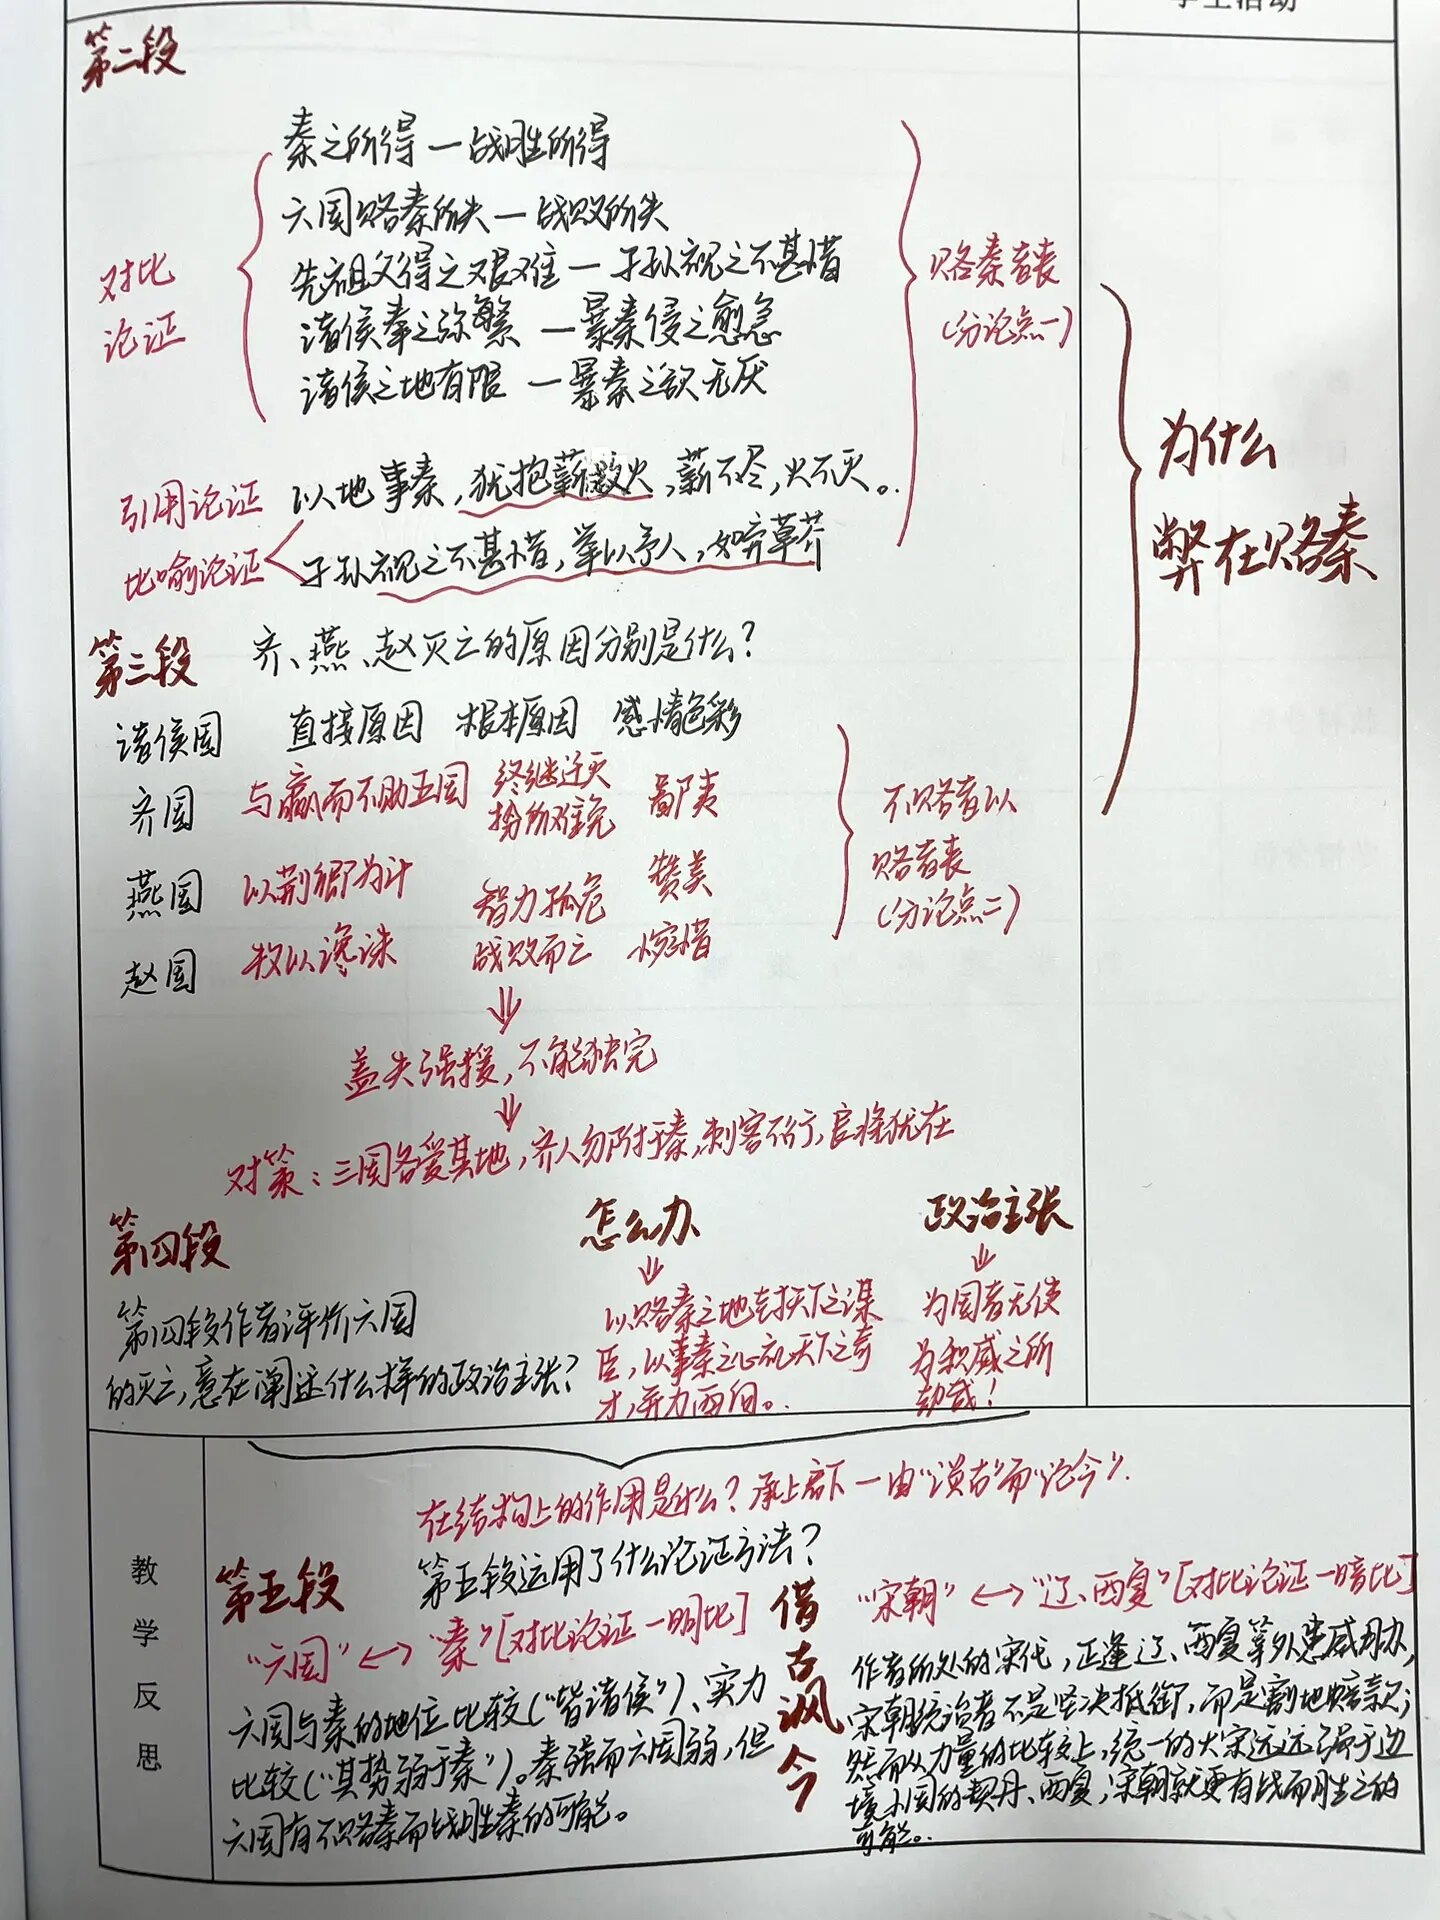 学生活动
第二段
秦之所得一战胜所得
六国赂秦所失一战败所失
先祖父得之艰难一子孙视之不甚惜
诸侯奉之弥繁一暴秦侵之愈急
诸侯之地有限一暴秦之欲无厌
对比
论证
赂秦者丧
(分论点一)
引用论证
以地事秦,犹抱薪救火,薪不尽,火不灭。
比喻论证
子孙视之不甚惜,举以予人,如弃草芥
为什么
弊在赂秦
第三段
齐、燕、赵灭亡的原因分别是什么?
诸侯国 直接原因 根本原因 感情色彩
齐国 与嬴而不助五国 终继迁灭 鄙夷
燕国 以荆卿为计 智力孤危 赞美
赵国 牧以谗诛 战败而亡 惋惜
不赂者以
赂者丧
(分论点二)
盖失强援,不能独完
对策:三国各爱其地,齐人勿附于秦,刺客不行,良将犹在
第四段
第四段作者评价六国
的灭亡,意在阐述什么样的政治主张?
怎么办
以赂秦之地封天下之谋
臣,以事秦之心礼天下之奇
才,并力西向。
政治主张
为国者无使
为积威之所
劫哉!
教学反思
在结构上的作用是什么?承上启下一由“谈古”而“论今”.
第五段
第五段运用了什么论证方法?
“六国”↔“秦”[对比论证一明比]
六国与秦的地位比较(“皆诸侯”)、实力
比较(“其势弱于秦”)。秦强而六国弱,但
六国有不赂秦而战胜秦的可能。
借古讽今
“宋朝”↔“辽、西夏”[对比论证一暗比]
作者所处的宋代,正逢辽、西夏等外患威胁,
宋朝统治者不是坚决抵御,而是割地赔款;
然而从力量的比较上,统一的大宋远远强于边
境小国的契丹、西夏,宋朝就更有战而胜之的
可能。